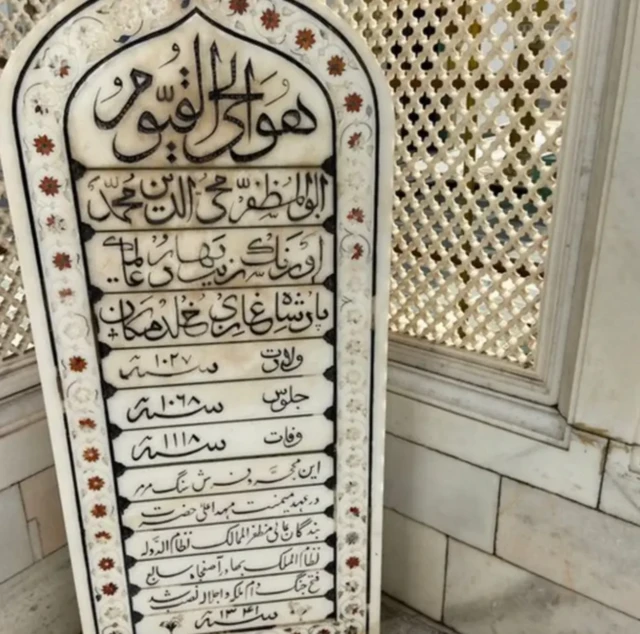 هو الحی القیوم
ابوالمظفر محی الدین محمد
اورنگ زیب بهادر عالمگیر
پادشاه غازی خلد مکان
ولادت سنه ۱۰۲۷
جلوس سنه ۱۰۶۸
وفات سنه ۱۱۱۸
این محجر و فرش سنگ مرمر
در عهد میمنت مهد اعلی حضرت
بندگان عالی مظفر الممالک نظام الدوله
نظام الملک بهادر آصفجاه سابع
فتح جنگ دام ملکه و اجلاله نصب شد
سنه ۱۳۴۱